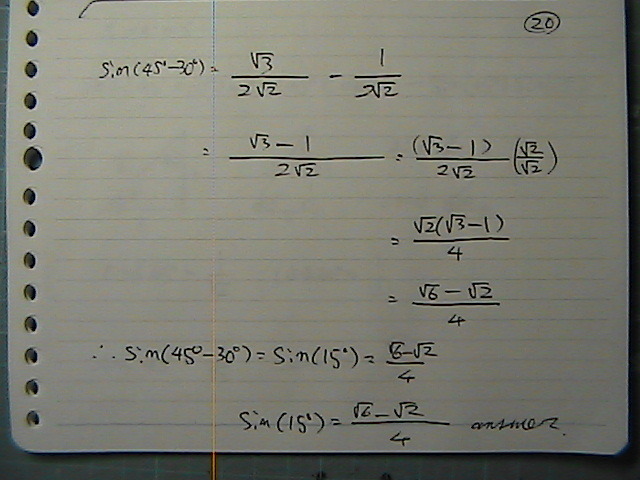 20
Sin(45°-30°) = √3/2√2 - 1/2√2
= (√3-1)/2√2 = (√3-1)/2√2 (√2/√2)
= √2(√3-1)/4
= (√6-√2)/4
∴ Sin(45°-30°) = Sin(15°) = (√6-√2)/4
Sin(15°) = (√6-√2)/4 answer.